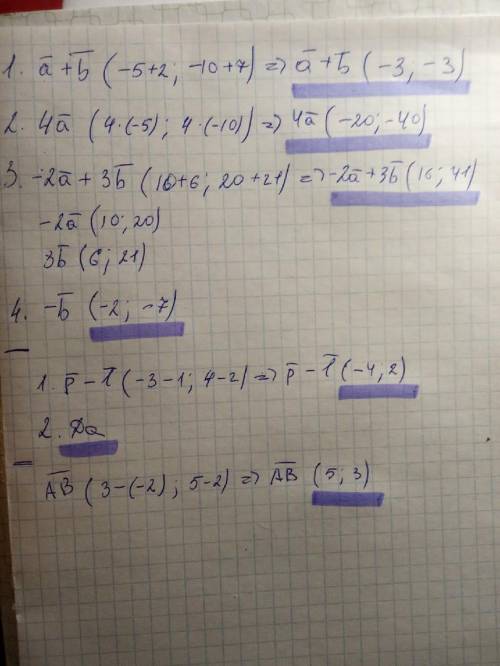 1. a̅+b̅ (-5+2; -10+7) => a̅+b̅ (-3, -3)
2. 4a̅ (4·(-5); 4·(-10)) => 4a̅ (-20; -40)
3. -2a̅ + 3b̅ (10+6; 20+21) => -2a̅+3b̅ (16; 41)
-2a̅ (10; 20)
3b̅ (6; 21)
4. -b̅ (-2; -7)
1. p̅ - l̅ (-3-1; 4-2) => p̅ - l̅ (-4, 2)
2. Да
A̅B̅ (3-(-2); 5-2) => A̅B̅ (5; 3)